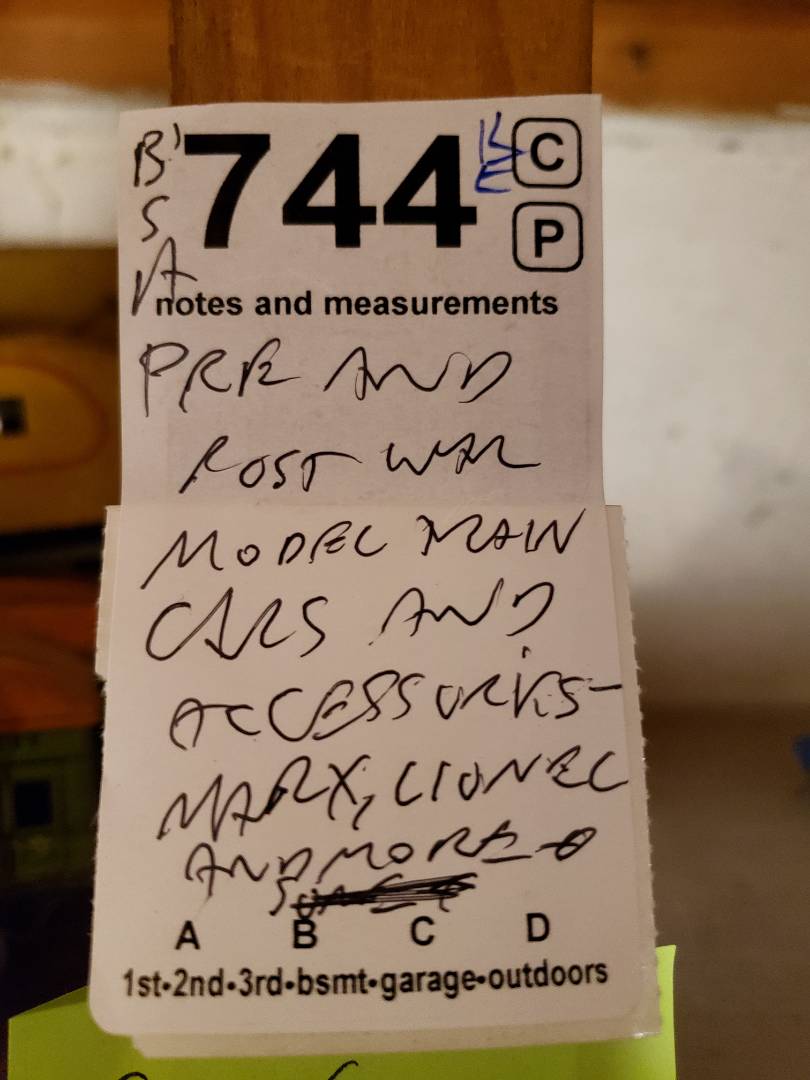 B' 744 C
S P
A
notes and measurements
PRE AND
POST WAR
MODEL TRAIN
CARS AND
ACCESSORIES-
MARX, LIONEL
AND MORE
A B C D
1st•2nd•3rd•bsmt•garage•outdoors